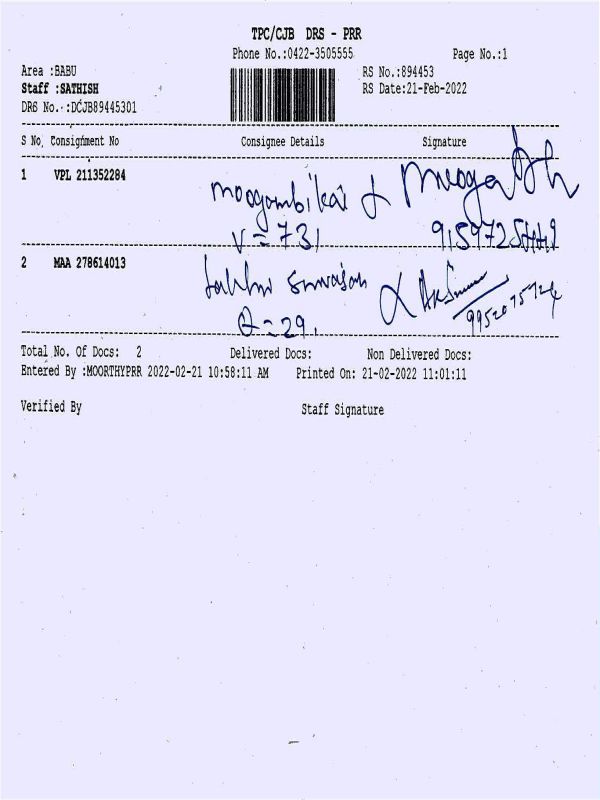 TPC/CJB DRS - PRR
Phone No.:0422-3505555 Page No.:1
Area :BABU RS No.:894453
Staff :SATHISH RS Date:21-Feb-2022
DRS No.:DCJB89445301
S No. Consignment No Consignee Details Signature
1 VPL 211352284
moogambikai
V = 731 915972
2 MAA 278614013
θ = 29. 9952075724
Total No. Of Docs: 2 Delivered Docs: Non Delivered Docs:
Entered By :MOORTHYPRR 2022-02-21 10:58:11 AM Printed On: 21-02-2022 11:01:11
Verified By Staff Signature